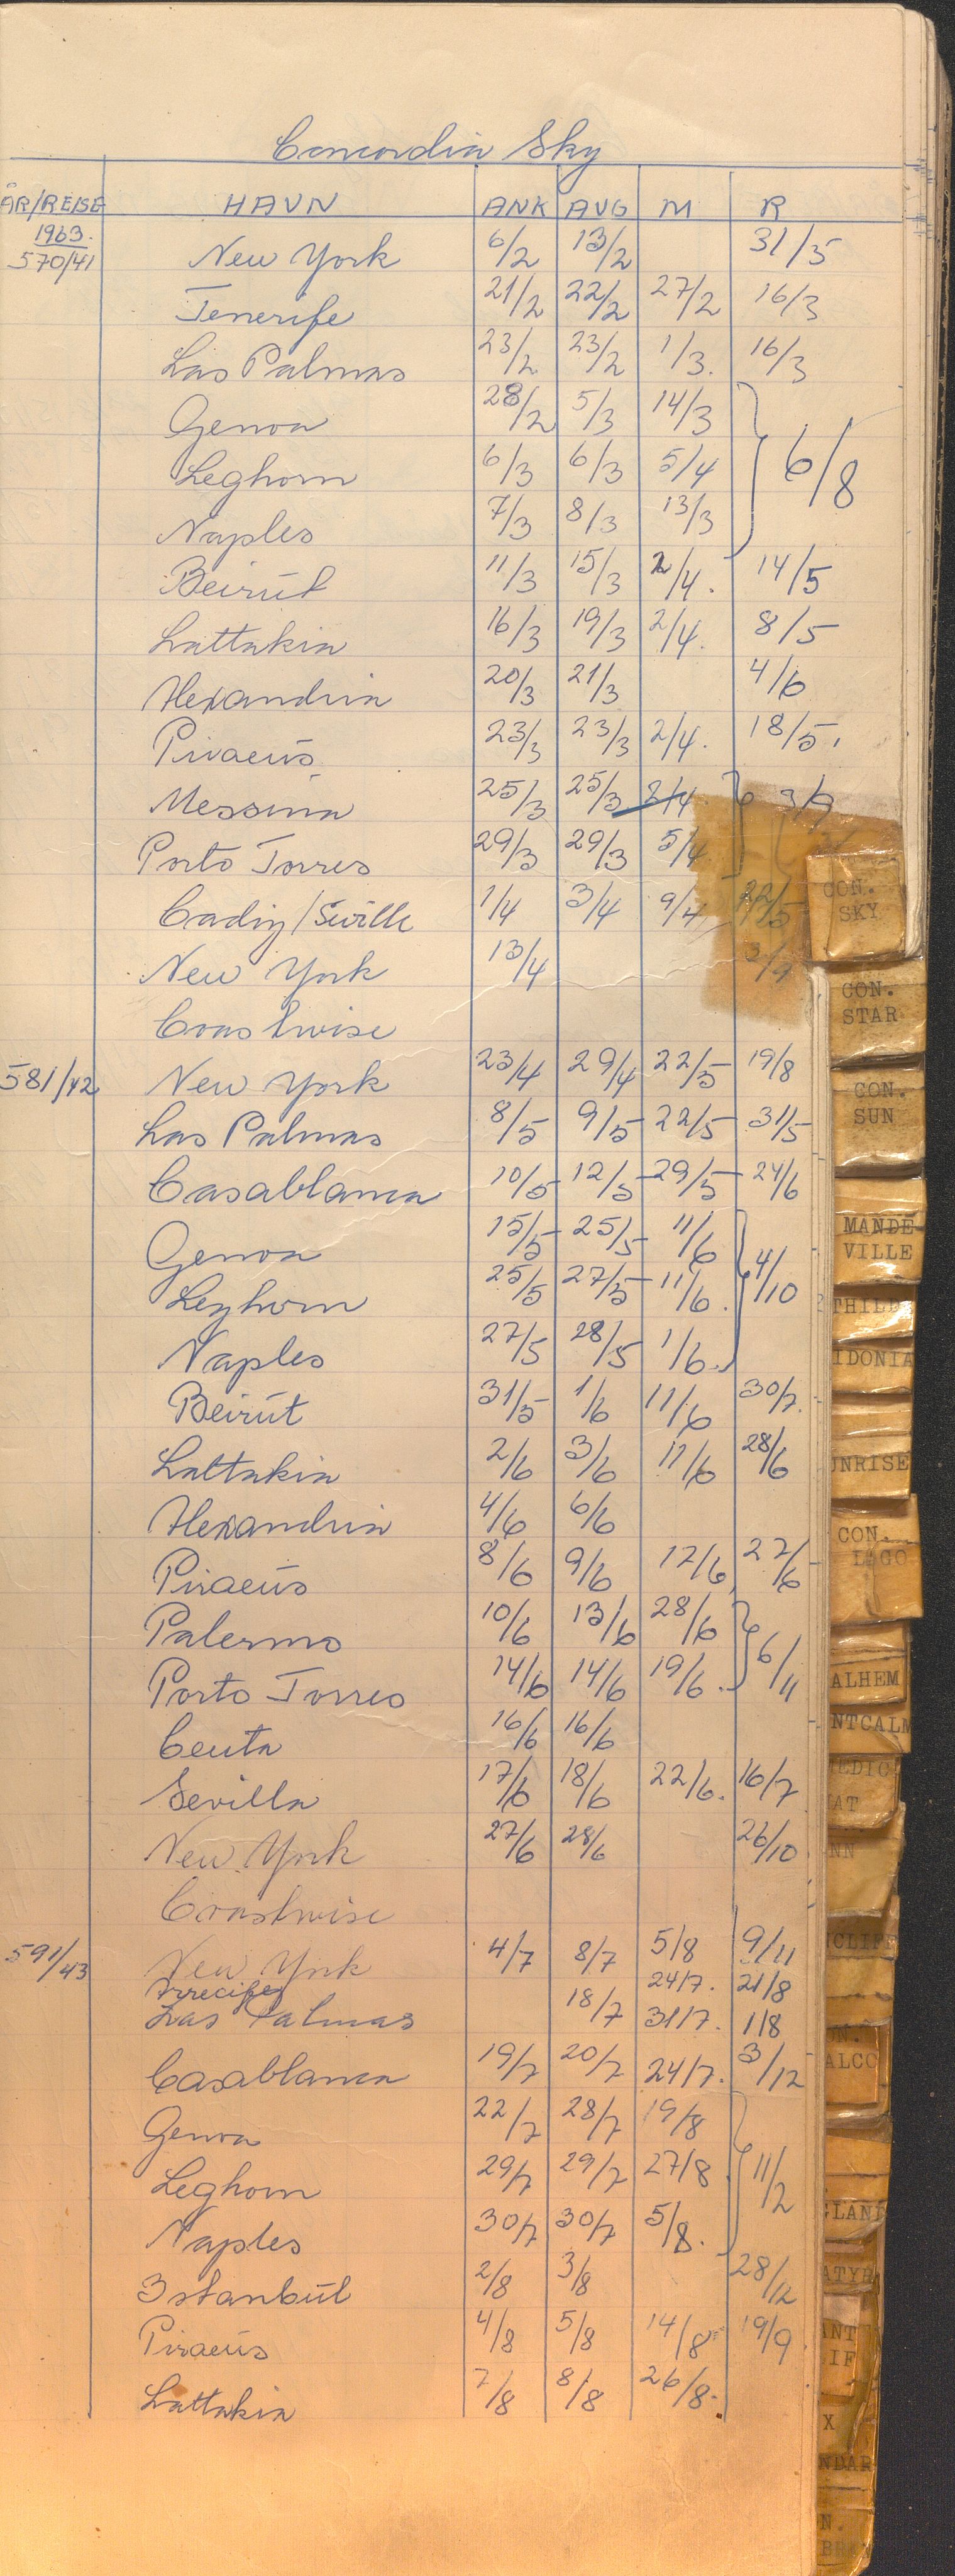 Concordia Sky
ÅR/REISE HAVN ANK AVG M R
1963.
570/41 New York 6/2 13/2 31/5
Tenerife 21/2 22/2 27/2 16/3
Las Palmas 23/2 23/2 1/3. 16/3
Genoa 28/2 5/3 14/3
Leghorn 6/3 6/3 5/4 6/8
Naples 7/3 8/3 13/3
Beirut 11/3 15/3 2/4. 14/5
Lattakia 16/3 19/3 2/4. 8/5
Alexandria 20/3 21/3 4/6
Piraeus 23/3 23/3 2/4. 18/5.
Messina 25/3 25/3 2/4. 3/9
Porto Torres 29/3 29/3 5/4
Cadiz/Seville 1/4 3/4 9/4 22/5
New York 13/4 3/9
Coastwise
581/42 New York 23/4 29/4 22/5 19/8
Las Palmas 8/5 9/5 22/5 31/5
Casablanca 10/5 12/5 29/5 24/6
Genoa 15/5 25/5 11/6
Leghorn 25/5 27/5 11/6. 4/10
Naples 27/5 28/5 1/6.
Beirut 31/5 1/6 11/6 30/7.
Lattakia 2/6 3/6 11/6 28/6
Alexandria 4/6 6/6
Piraeus 8/6 9/6 17/6 27/6
Palermo 10/6 13/6 28/6
Porto Torres 14/6 14/6 19/6. 6/11
Ceuta 16/6 16/6
Sevilla 17/6 18/6 22/6. 16/7
New York 27/6 28/6 26/10
Coastwise
591/43 New York 4/7 8/7 5/8 9/11
Arrecife 24/7. 21/8
Las Palmas 18/7 31/7. 1/8
Casablanca 19/7 20/7 24/7. 3/12
Genoa 22/7 28/7 19/8
Leghorn 29/7 29/7 27/8 11/2
Naples 30/7 30/7 5/8.
Istanbul 2/8 3/8 28/12
Piraeus 4/8 5/8 14/8 19/9
Lattakia 7/8 8/8 26/8.
CON.
SKY
CON.
STAR
CON.
SUN
MANDE
VILLE
THILD
IDONIA
NRISE
CON.
LAGO
ALHEM
NTCALM
MEDIO
AT
NN
CLIFF
ON.
ALCO
GLAND
ATYR
INT
IF
X
NDAR
N.